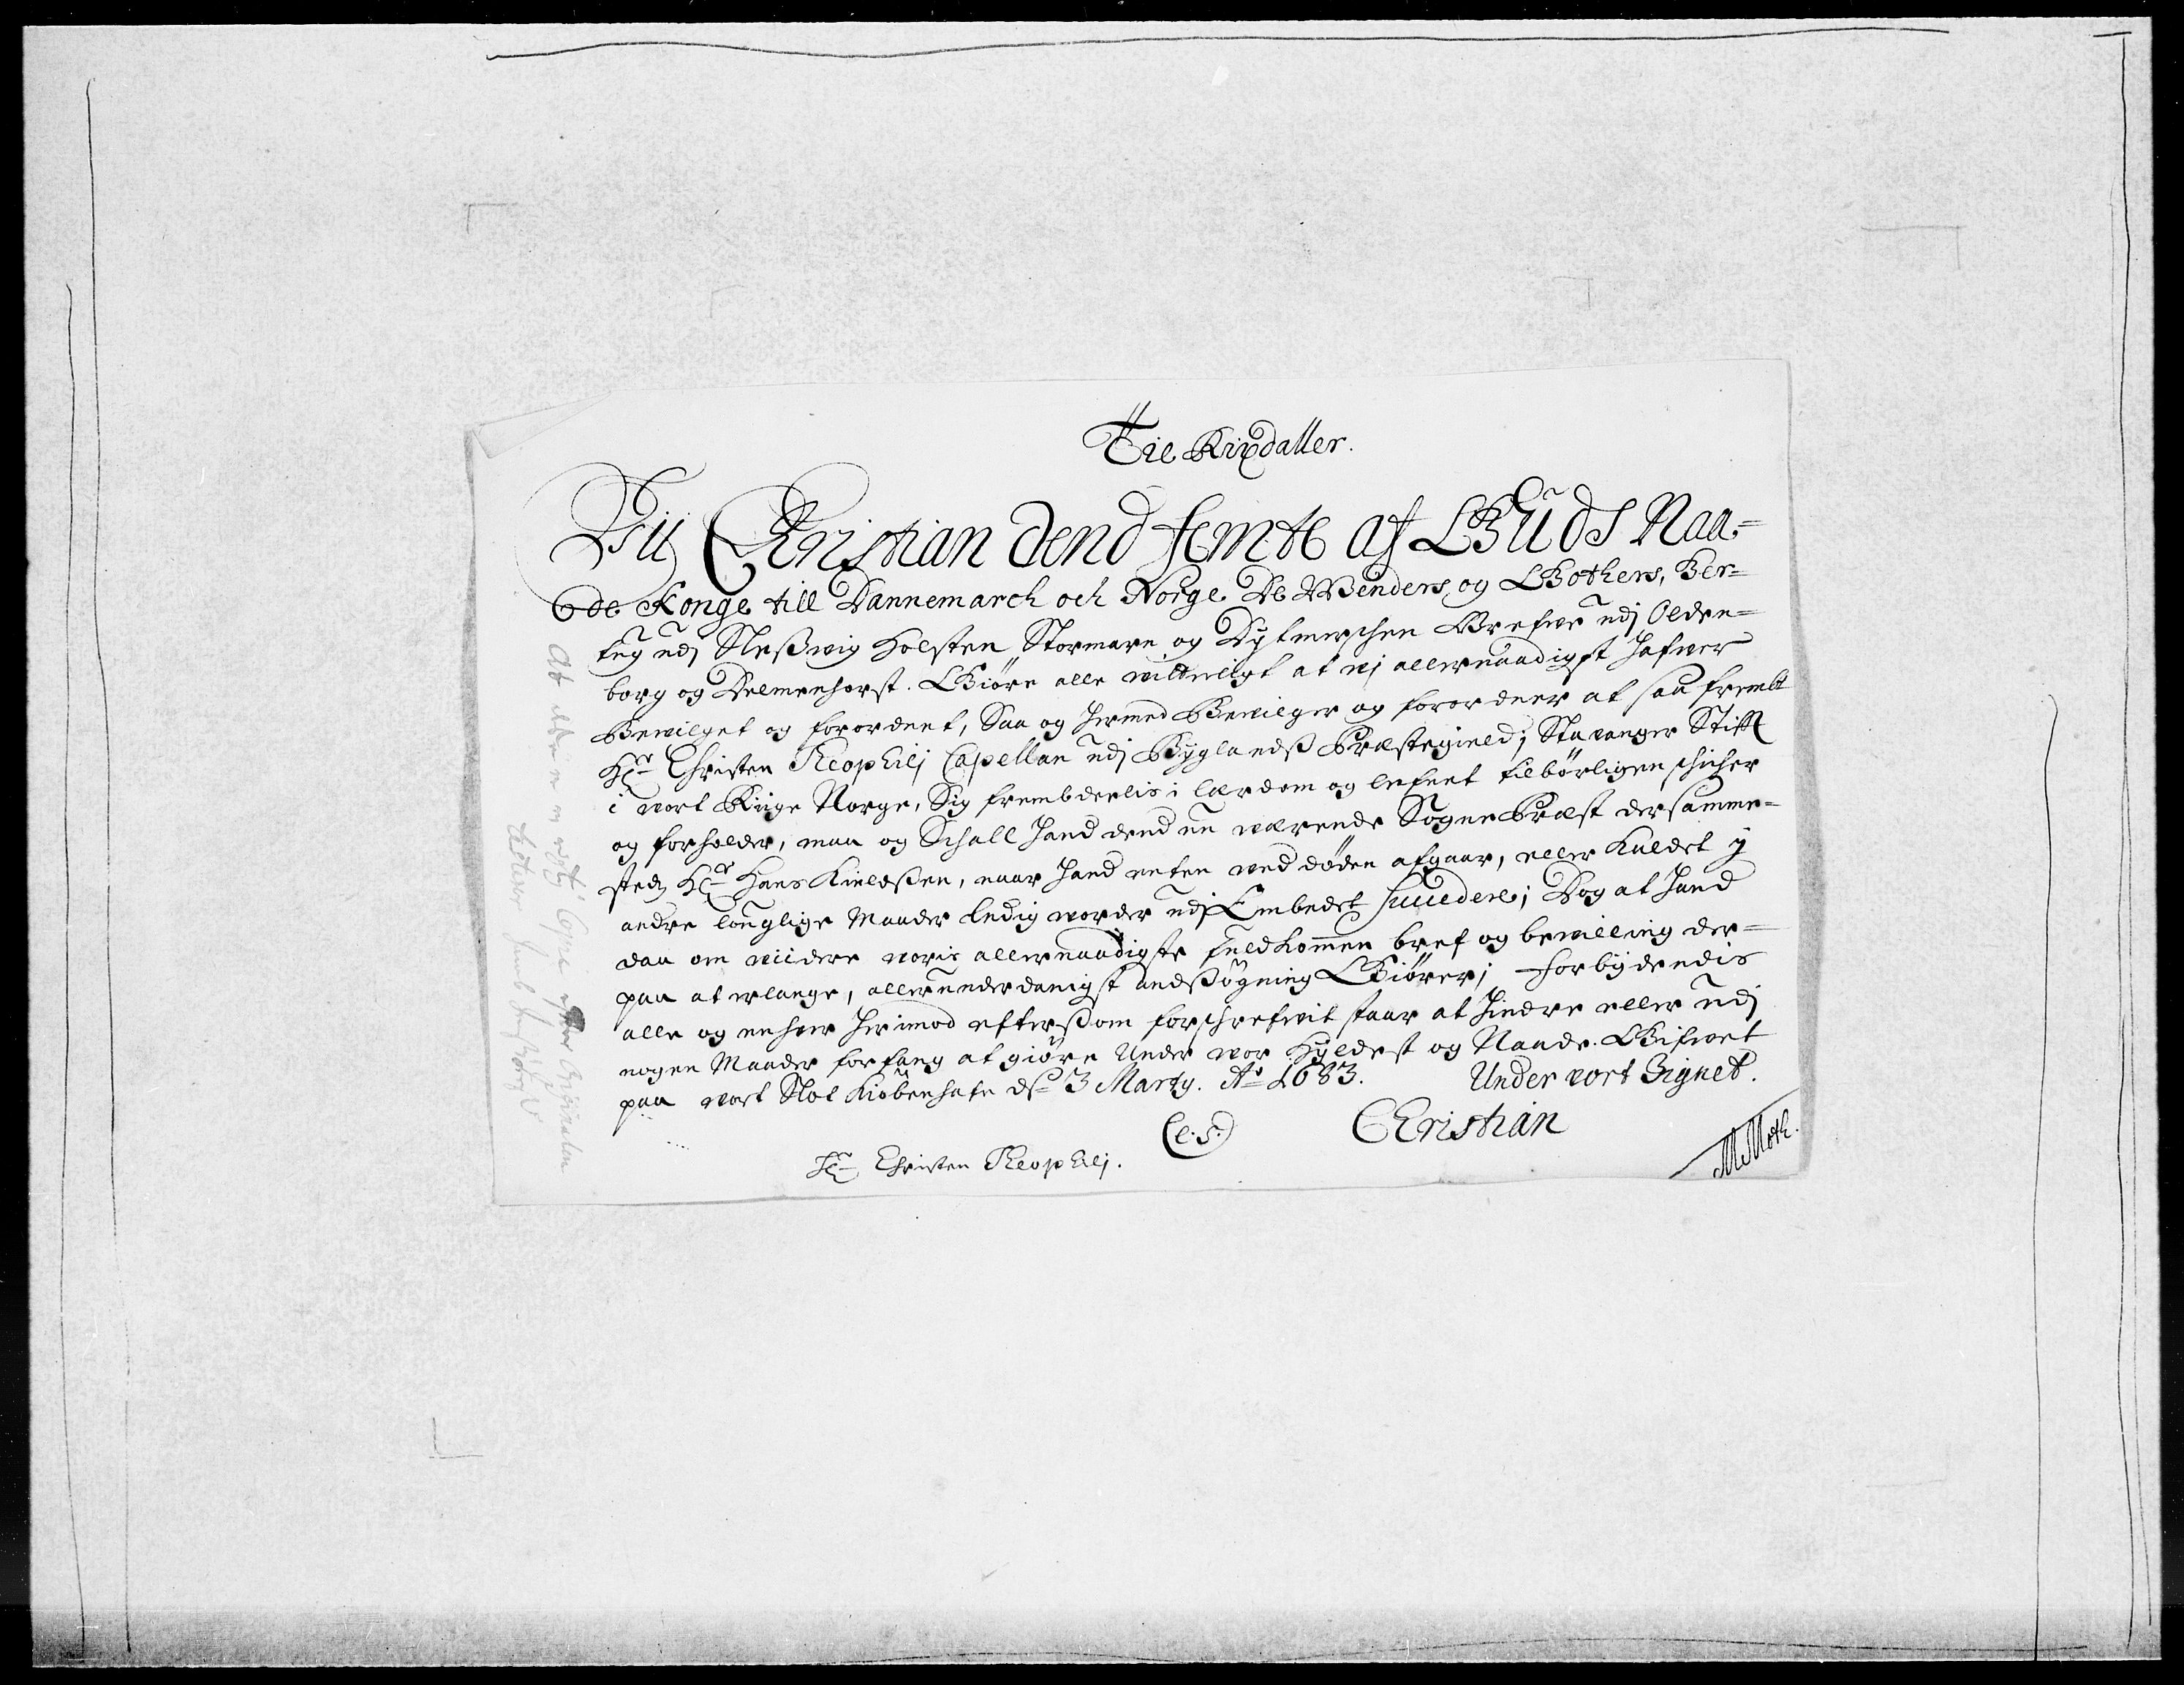 Tie Rixdaller.
Vii Christian dend femte af Guds Naa=
de Konge till Dannemarch och Norge De Wenders og Gothers, Her=
tug udj Slesvig Holsten, Stormarn og Dytmerschen Grefve udj Olden=
borg og Delmenhorst. Giöre alle vitterligt at vj allernaadigst hafver
Bevilget og forordnet, Saa og hermed Bevilger og forordner at saa frembt
Hr Christen Theophilj Capellan udj Byglandss Præstegield, Stavanger Stifft
i vort Rige Norge, Sig frembdeelis i lærdom og lefnet tilbörligen schicher
og forholder, maa og Schall hand dend nu værende Sogne Præst dersamme=
sted Hr Hans Kieldssen, naar hand enten ved döden afgaar, eller Kaldet y
andre louglige Maader ledig vorder udj Embedet succedere; Dog at hand
daa om viidere voris allernaadigste fuldkommen bref og bevilling der=
paa at erlange, allerunderdanigst andssögning Giörer; Forbydendis
alle og enhver herimod eftersom forschrefvit staar at hindre eller udj
nogen Maader forfang at giöre Under vor Hyldest og Naade. Gifvet
paa vort Slot Kiöbenhafn ds 3 Marty. Ao 1683. Under vort Signet.
(L.S.) Christian
M Moth.
Hr Christen Theophilj.